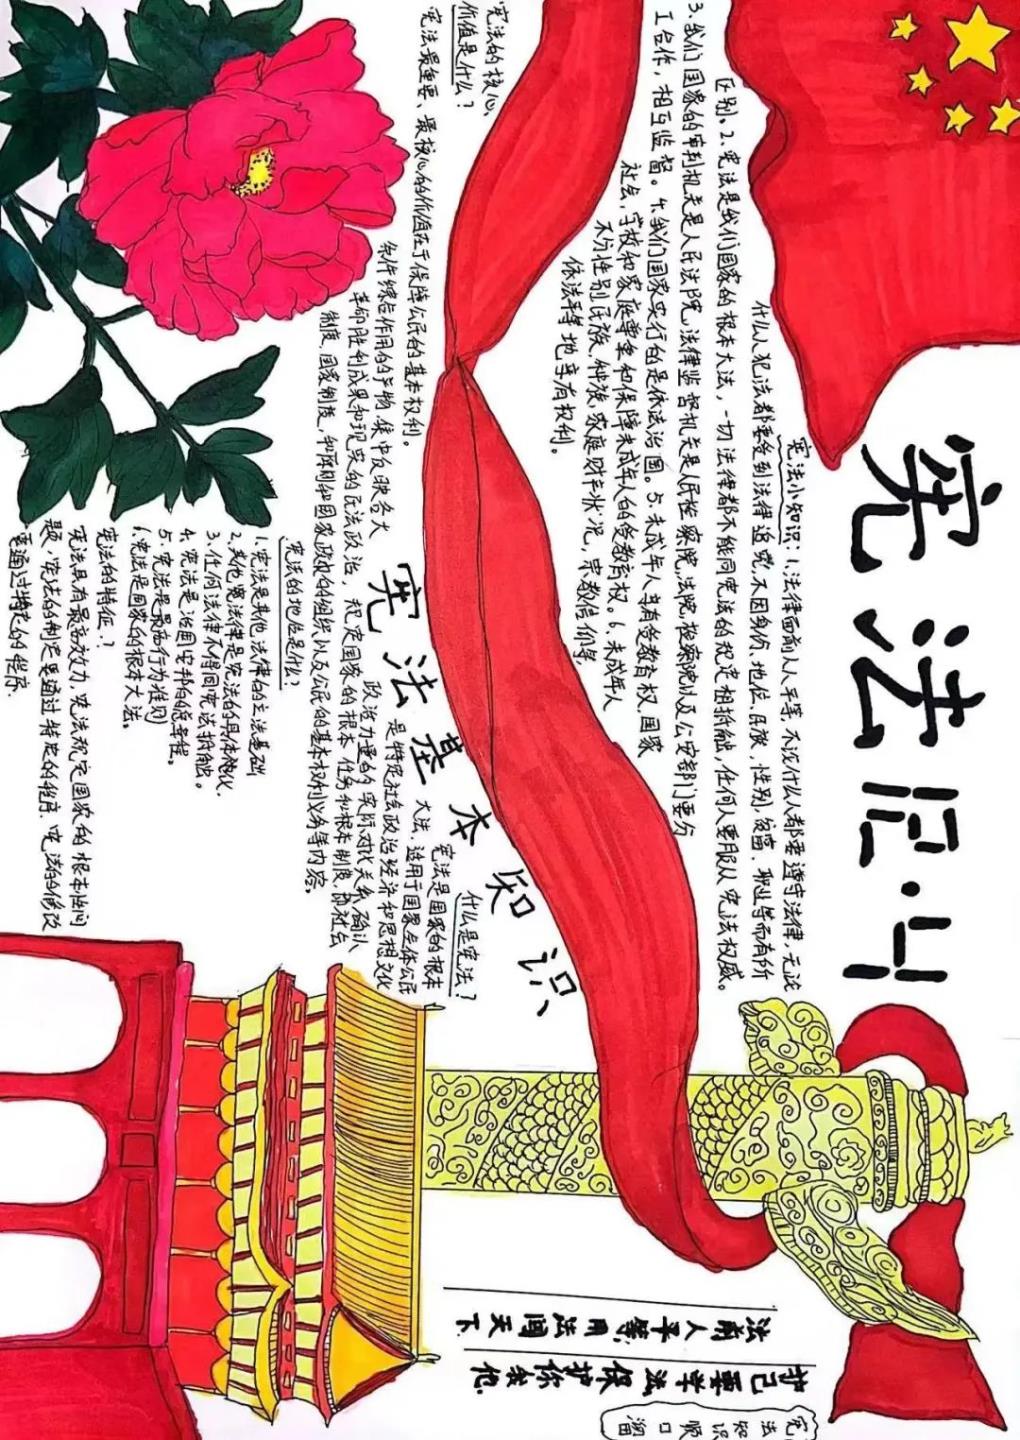 宪法12·4
宪法小知识:1.法律面前人人平等,不论什么人都要遵守法律,无论
什么人犯法都要受到法律追究,不因身份、地位、民族,性别,贫富、职业等而有价
区别。2.宪法是我们国家的根本大法,一切法律都不能同宪法的规定相抵触,任何人要服从宪法权威。
3.我们国家的审判机关是人民法院,法律监督机关是人民检察院,法院,检察院以及公安部门要分
工合作,相互监督。4.我们国家实行的是依法治国。5.未成年人享有受教育权,国家
社会,学校和家庭尊重和保障未成年人的受教育权。6.未成年人
不分性别,民族,种族,家庭财产状况,宗教信仰等,
依法平等地享有权利。
宪法的核心
价值是什么?
宪法最重要、最核心的价值在于保障公民的基本权利。
宪法基本知识
什么是宪法?
宪法是国家的根本
大法,适用于国家全体公民
是特定社会政治经济和思想文化
条件综合作用的产物,集中反映各大
政治力量的实际对比关系,确认
革命胜利成果和现实的民主政治,规定国家的根本任务和根本制度,即社会
制度、国家制度,和原则和国家政权的组织以及公民的基本权利义务等内容。
宪法的地位是什么?
1.宪法是其他法律的立法基础
2.其他法律是宪法的具体化
3.任何法律不得同宪法抵触。
4.宪法是治国安邦的总章程。
5.宪法是最高行为准则
6.宪法是国家的根本大法。
宪法的特征?
宪法具有最高效力,宪法规定国家的根本性问
题,宪法的制定要通过特定的程序,宪法的修改
要通过特定的程序。
宪法知识顺口溜
护己要学法 保护你我他
法前人平等 用法闯天下